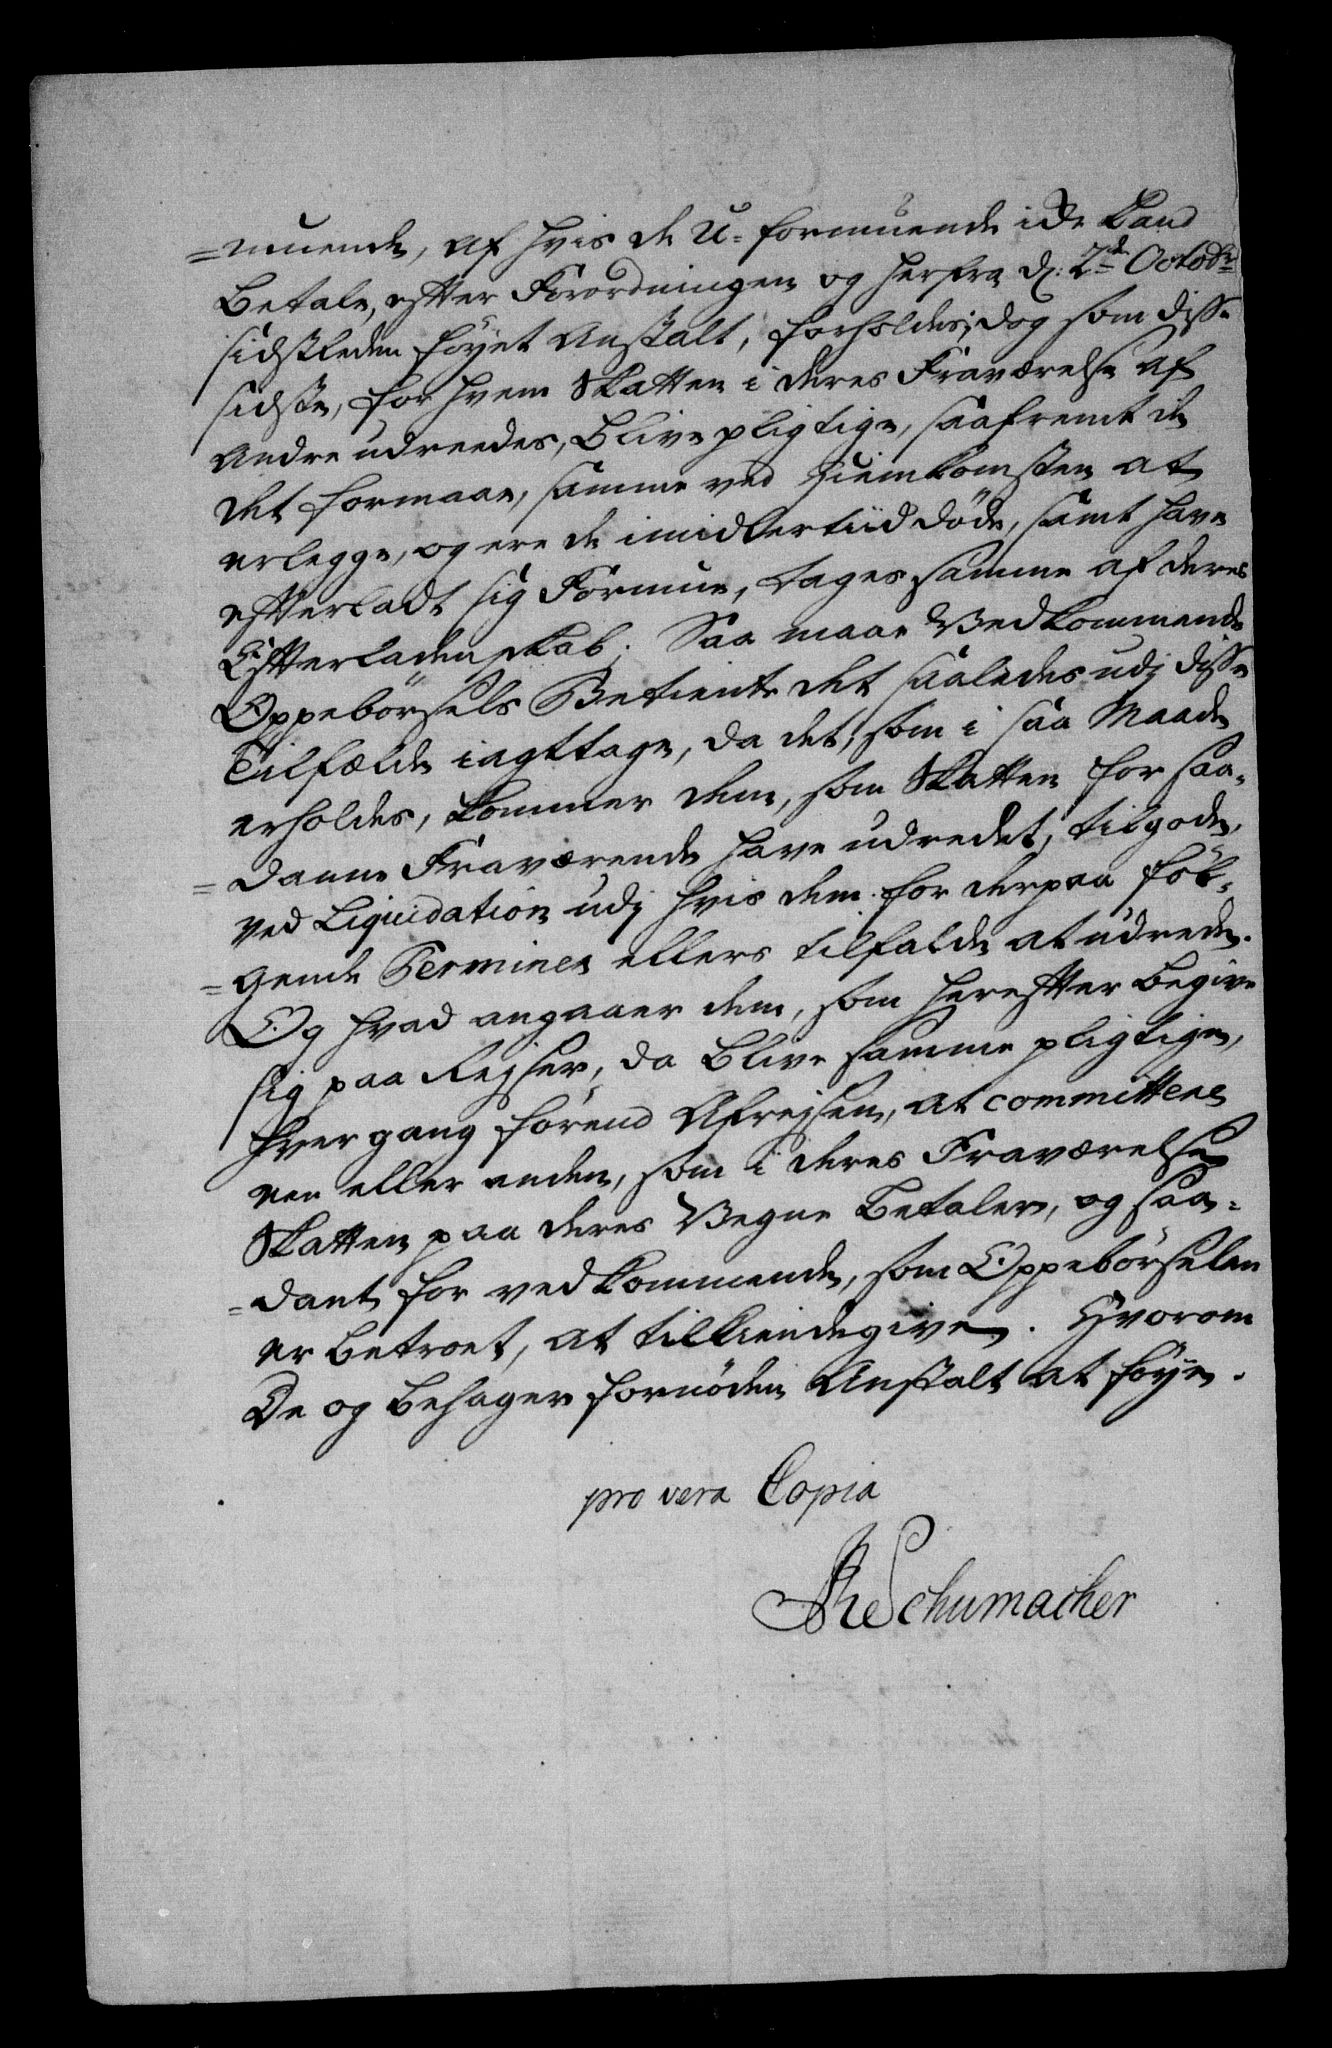 =muende, af hvis de U=formuende icke kand
betale, efter Forordningen og herfra d: 2de Octobr
sidstleden föyet Anstalt, forholdes; dog som disse
sidste, for hvem Skatten i deres Fraværelse af
Andre udreedes, blive pligtige, saafremt de
det formaae, samme ved Hiemkomsten at
erlegge, og ere de imidlertiid döde, samt have
efterladt sig Formue, tages samme af deres
Efterladenskab. Saa maae Vedkommende
Oppebörsels Betiente det saaledes udj disse
Tilfælde iagttage, da det, som i saa Maade
erholdes, kommer dem, som Skatten for saa-
=danne Fraværende have udredet, tilgode,
ved Liqvidation udj hvis dem for derpaa föl-
=gende Terminer ellers tilfalde at udrede.
Og hvad angaaer dem, som herefter begive
sig paa Rejser, da blive samme pligtige,
hver gang förend Afrejsen, at committere
een eller anden, som i deres Fraværelse
Skatten paa deres Vegne betaler, og saa-
=dant for vedkommende, som Oppebörselen
er betroet, at tilkiendegive. Hvorom
De og behager fornöden Anstalt at föye.
pro vera Copia
Schumacher